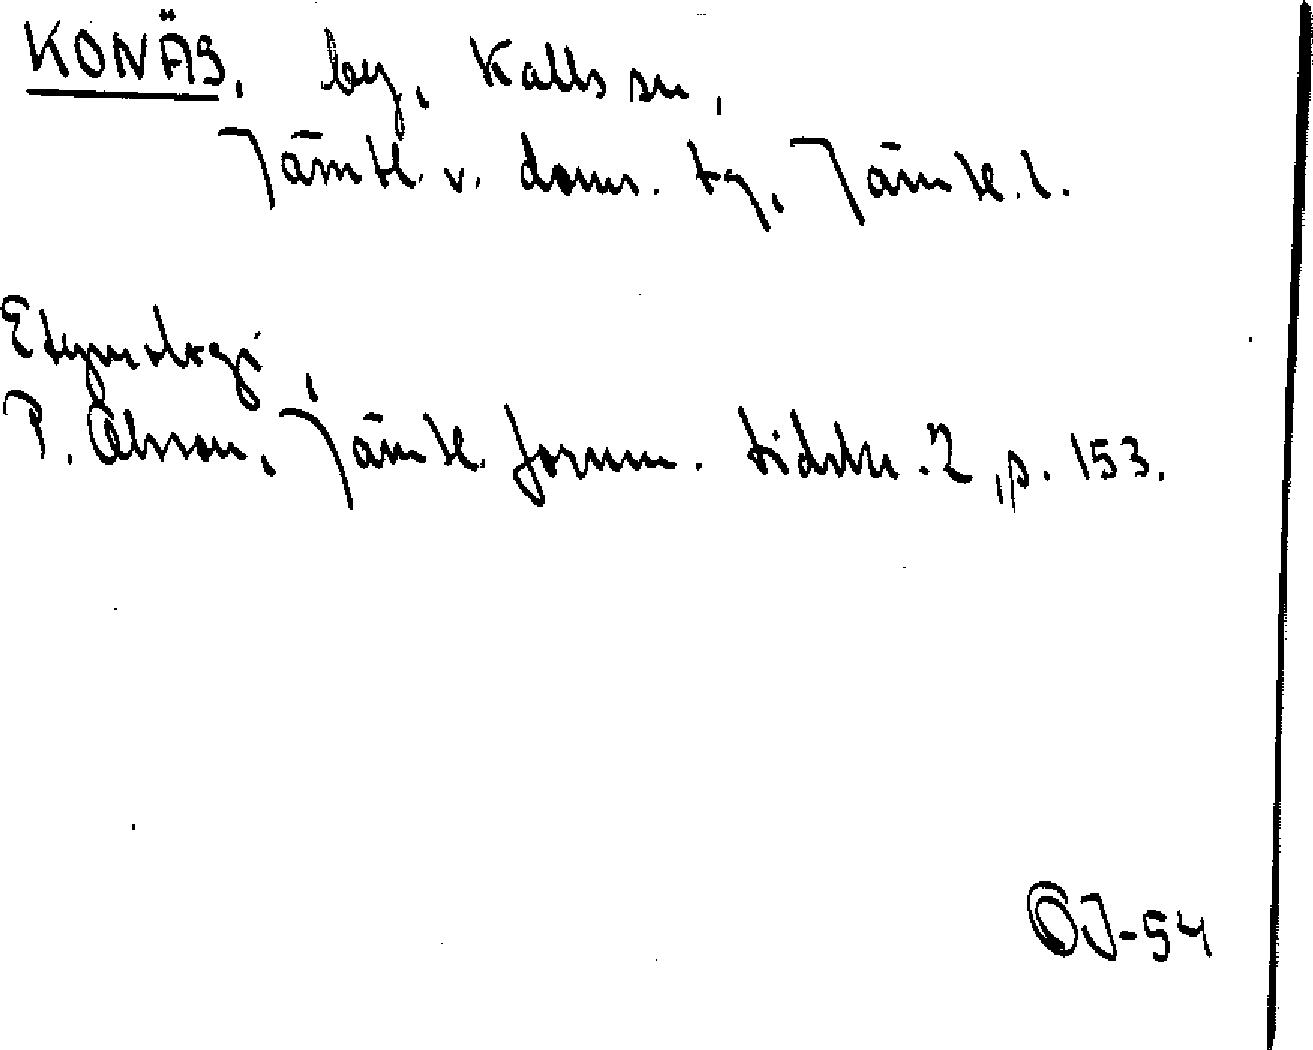 KONÄS, by, Kalls sn,
Jämtl. v. doms. tg, Jämtl. l.
Etymologi
P. Olsson, Jämtl. fornm. tidskr. 2, p. 153.
OJ-54